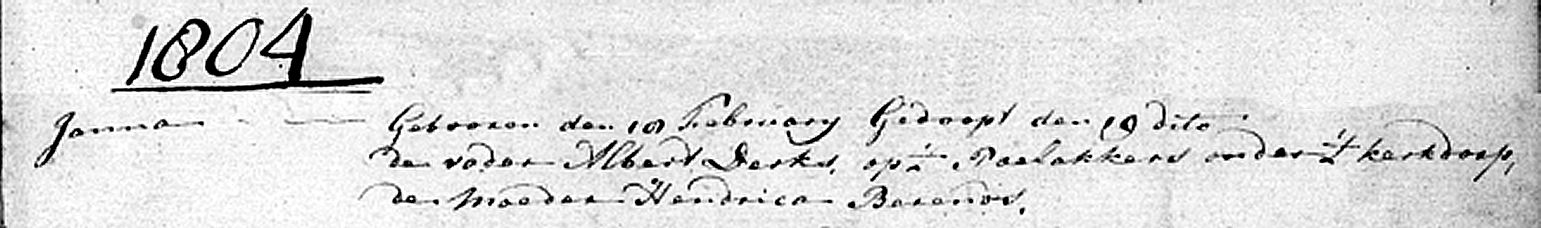 1804
Janna Gebooren den 18 February Gedoopt den 19 dito
de vader Albert Derks, op't Roelakkers onder 't kerkdorp,
de moeder Hendrica Barends,